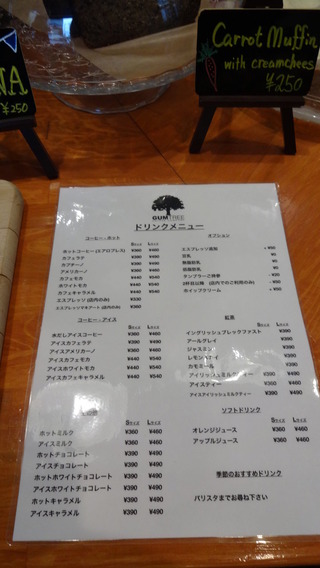 Carrot Muffin
with creamchees
¥250
NA
¥250
GUMTREE
ドリンクメニュー
コーヒー・ホット
Sサイズ Lサイズ
ホットコーヒー(エアロプレス) ¥360 ¥460
カフェラテ ¥390 ¥490
カプチーノ ¥390 ¥490
アメリカーノ ¥360 ¥460
カフェモカ ¥440 ¥540
ホワイトモカ ¥440 ¥540
カフェキャラメル ¥440 ¥540
エスプレッソ (店内のみ)
エスプレッソマキアート (店内のみ)
コーヒー・アイス
Sサイズ Lサイズ
水だしアイスコーヒー ¥360 ¥460
アイスカフェラテ ¥390 ¥490
アイスアメリカーノ ¥360 ¥460
アイスカフェモカ ¥440 ¥540
アイスホワイトモカ ¥440 ¥540
アイスカフェキャラメル ¥440 ¥540
Sサイズ Lサイズ
ホットミルク ¥360 ¥460
アイスミルク ¥360 ¥460
ホットチョコレート ¥390 ¥490
アイスチョコレート ¥390 ¥490
ホットホワイトチョコレート ¥390 ¥490
アイスホワイトチョコレート ¥390 ¥490
ホットキャラメル ¥390 ¥490
アイスキャラメル ¥390 ¥490
オプション
エスプレッソ追加 +¥50
豆乳 ¥0
無脂肪乳 ¥0
低脂肪乳 ¥0
タンブラーご持参
2杯目以降 (店内でのご利用のみ)
ホイップクリーム +¥50
紅茶
Sサイズ Lサイズ
イングリッシュブレックファースト ¥390
アールグレイ ¥390
ジャスミン ¥390
レモン ¥390
カモミール ¥390
アイリッシュミルクティー ¥390 ¥490
アイスティー ¥360 ¥460
アイスアイリッシュミルクティー ¥390 ¥490
ソフトドリンク
Sサイズ Lサイズ
オレンジジュース ¥360 ¥460
アップルジュース ¥360 ¥460
季節のおすすめドリンク
バリスタまでお尋ね下さい